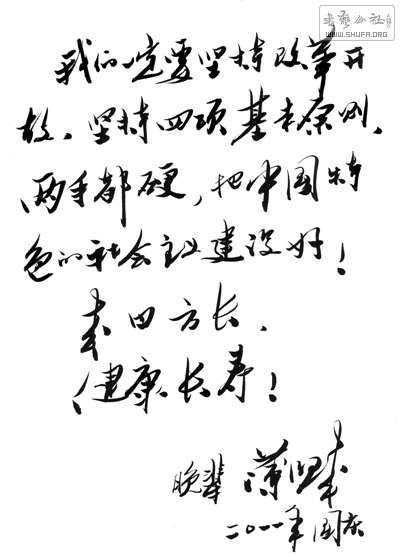 書藝公社
WWW.SHUFA.ORG
我们一定要坚持改革开
放、坚持四项基本原则、
两手都硬,把中国特
色的社会主义建设好!
来日方长,
健康长寿!
晚辈 薄熙来
二〇一一年国庆